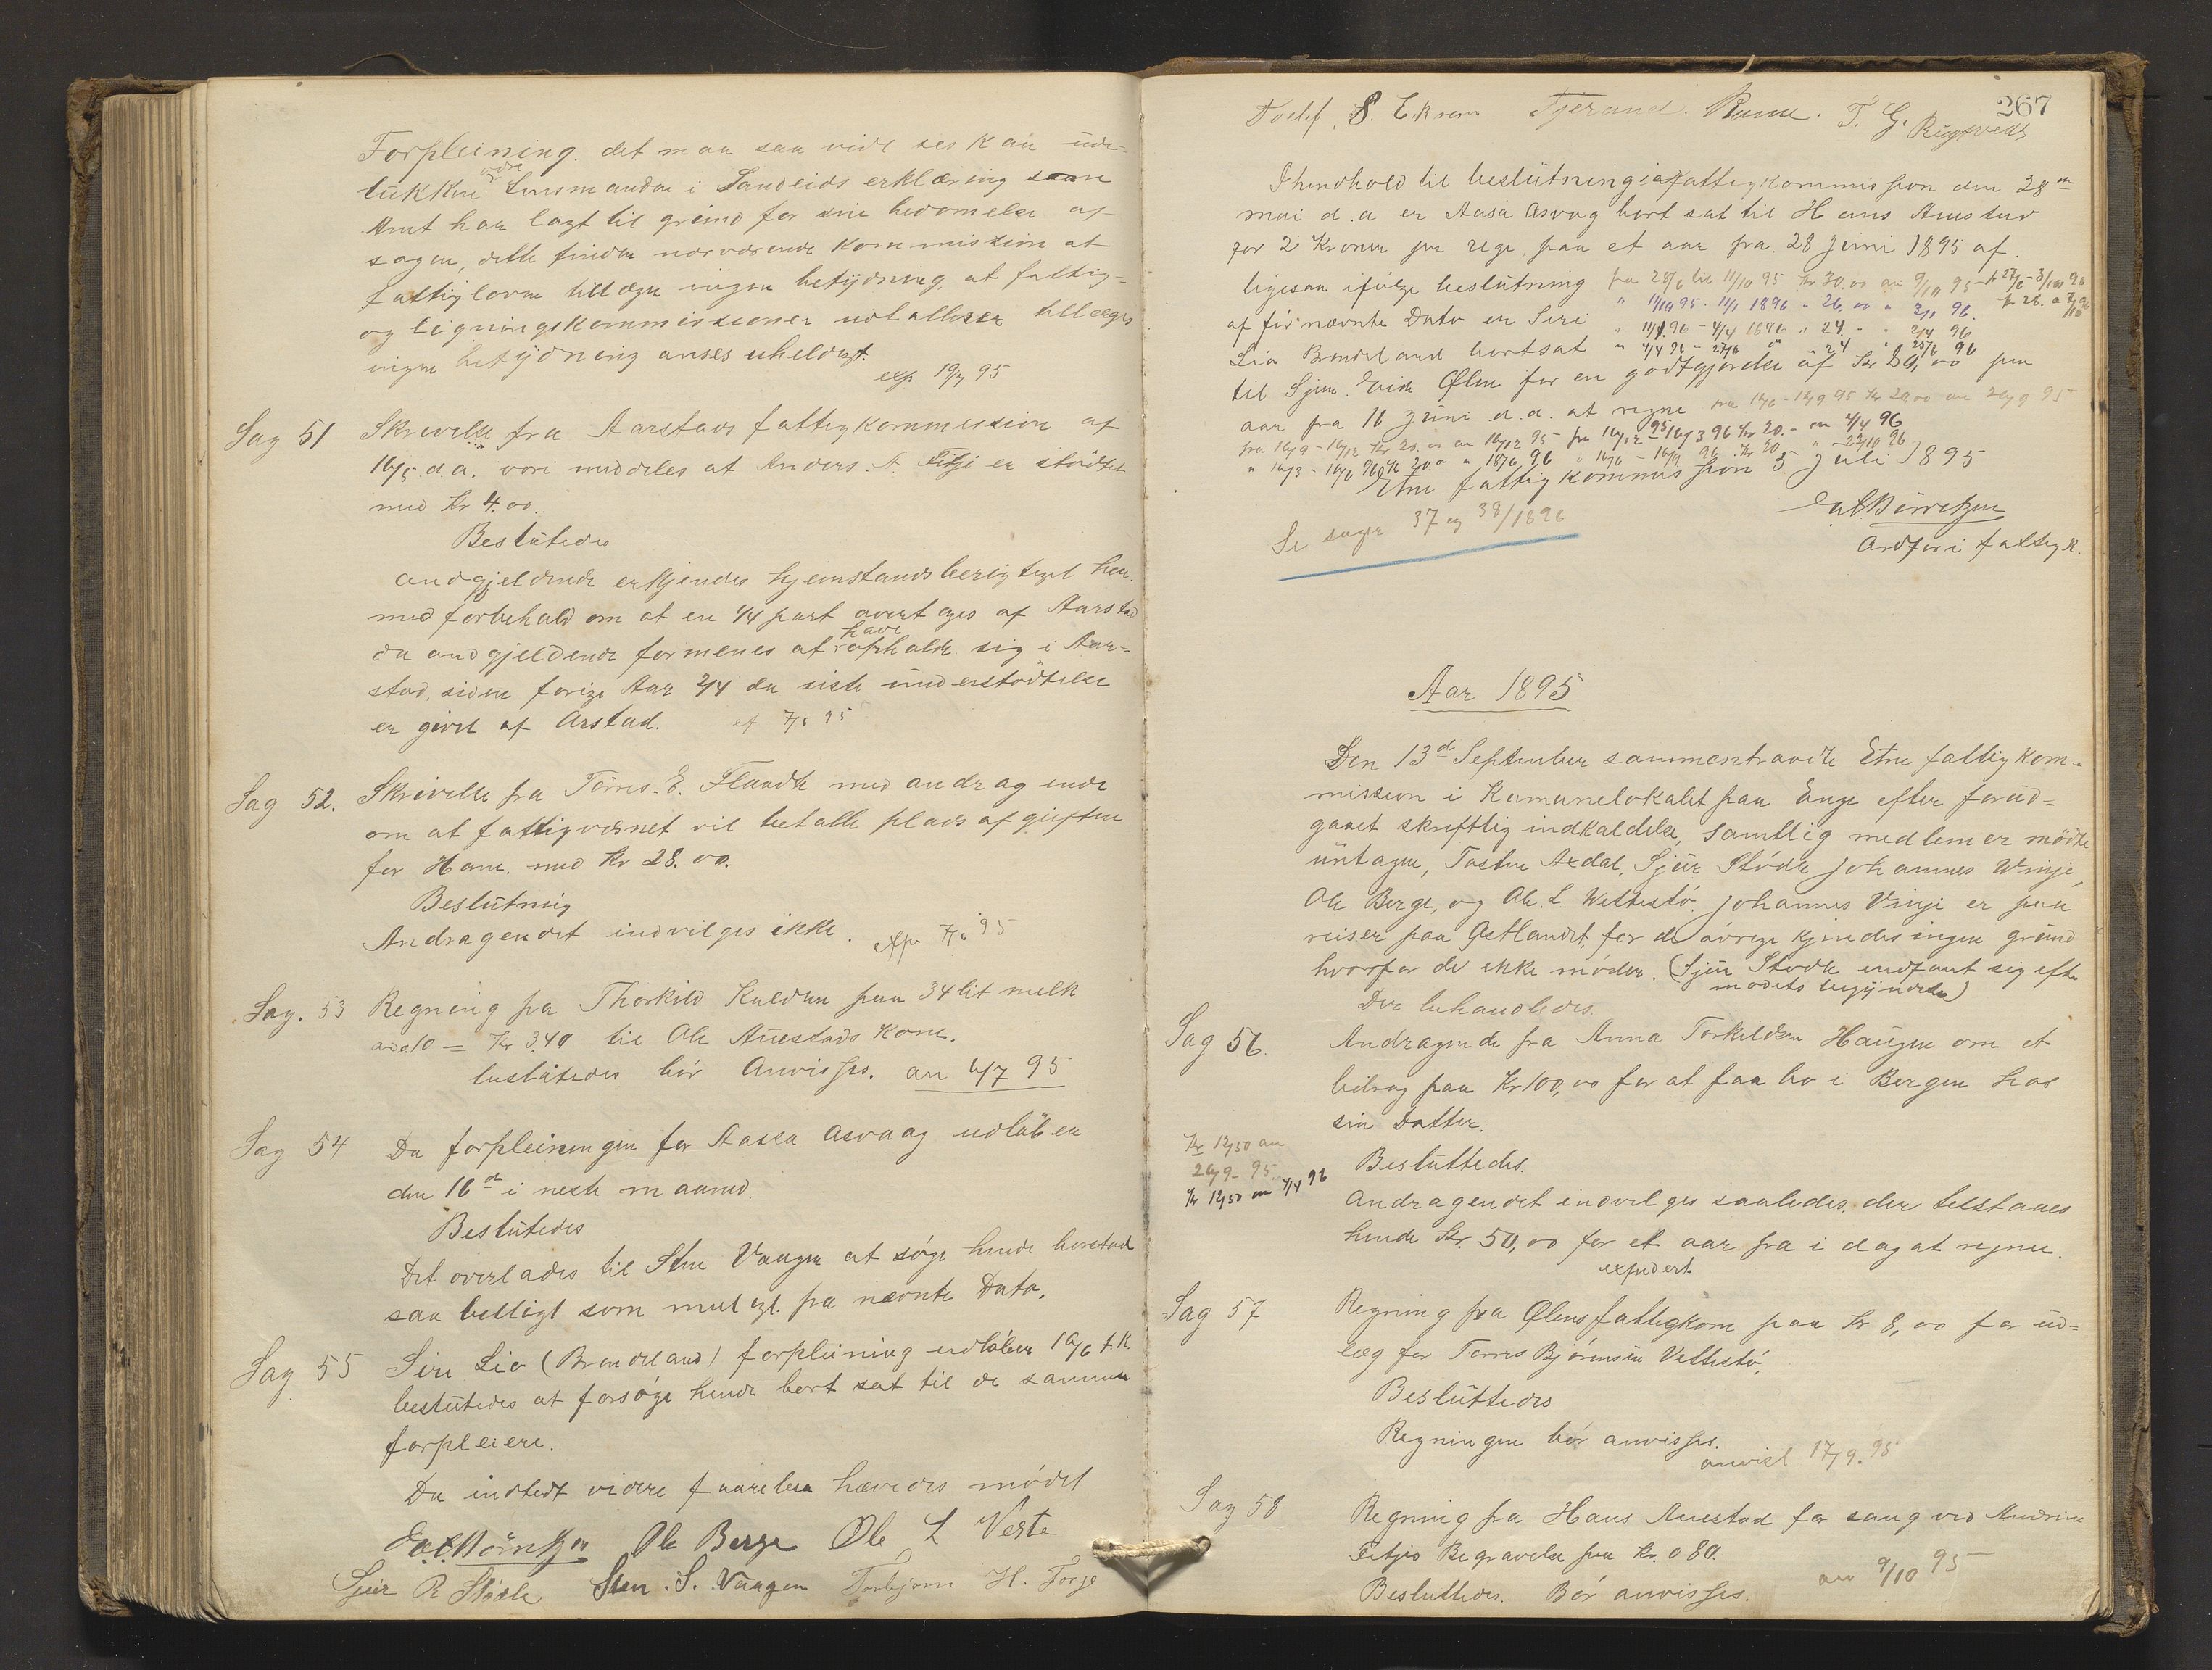 Forpleining. det maa saa vidt ses kun ude-
lukkende Lensmanden i Sandeids erklæring som
Amt har lagt til grund for sin bedømelse af
sagen, dette finder nærværende kommission at
fattigloven tillægger ingen betydning. at fattig-
og ligningskommissioner udtallelser tillæges
ingen betydning anses uheldigt.
exp 19/7 95
Sag 51 Skrivelse fra Aarstads fattigkommission af
16/5 d.a. vori meddeles at Anders. A. Fitje er støttet
med Kr 4.00.
Beslutedes
andgjeldende erkjendes hjemstandsberigtiget her
med forbehald om at en 1/4 part overtages af Aarstad
da andgjeldende formenes at have opholdt sig i Aar-
stad siden forige Aar 2/4 da siste understøttelse
er givet af Arstad. ef 7/6 95
Sag 52. Skrivelse fra Tørres. E. Flaadte med andragende
om at fattigvæsnet vil betalle plads afgiften
for Ham. med Kr 28.00.
Beslutning
Andragendet indvilges ikke. Exp 7/6 95
Sag. 53 Regning fra Thorkild Kaldem paa 34 lit melk
ad a 10 = Kr 3.40 til Ole Auestads Kone.
beslutedes bør Anvisses. an 4/7 95
Sag 54 Da forpleiningen for Aasea Asvaag udløben
den 16de i neste maaned.
Beslutedes
Det overlades til Sten Vaagen at søge hende borsted
saa billigt som muligt. fra nævnte Dato.
Sag 55 Siri Lio (Brendeland) forpleining udløben 10/6 f.k.
beslutedes at forsøge hende bort sat til de samme
forpleiere.
Da indtedt videre faareleа hævedes mødet
E. A. Børretzen Ole Berge Ole L Veste
Sjur R Støle Sten. S. Vaagen Torbjørn H. Fosse
267
Detlef. S. Ekrem Tjerand. Rame. T. G. Rygtvedt
I henhold til beslutning i fattigkommission den 28de
mai d.a er Aasa Asvag bort sat til Hans Auestad
for 2 Kroner pr uge paa et aar fra 28 Juni 1895 af.
ligesaa ifølge beslutning fra 28/6 til 11/10 95 Kr 30,00 an 9/10 95
" 11/10 95 - 11/1 1896 - 26,00 " 2/1 96.
af førnævnte Dato er Siri " 11/1 96 - 4/4 1896 " 24. - " 2/4 96
Lio Brendeland bortsat " 4/4 96 - 27/6 " " 24 " 25/6 96
til Sjur. Erik Ølen for en godtgjørelse af Kr 80,00 pen
aar fra 16 Juni d.a. at regne fra 16/6 - 16/9 95 Kr 20,00 an 26/9 95
fra 16/9 - 16/12 Kr 20.00 an 16/12 95 - fra 16/12 95 - 16/3 96 Kr 20. - an 4/4 96
" 16/3 - 16/6 96 Kr 20.0 " 18/6 96 " 16/6 - 16/9 96. Kr 20 " - 22/10 96
Etne fattigkommission 5 Juli 1895
E. A. Børretzen
Ordfør i fattigk.
Se sager 37 og 38/1896
Aar 1895
Den 13de September sammentraadte Etne fattigkom-
mission i Kamunelokalet paa Enge efter forud=
gaaet skriftlig indkaldelse, samtlig medlemer mødte
untagen, Tosten Axdal, Sjur Støle Johannes Vinje,
Ole Berge, og Ole. L. Vettestø. Johannes Vinje er paa
reiser paa Østlandet, for de øvrige kjendes ingen grund
hvorfor de ikke møder. (Sjur Støle indfant sig efter
mødets begyndelse)
Der behandledes.
Sag 56. Andragende fra Anna Torkildsen Haugen om et
bidrag paa Kr 100,00 for at faa bo i Bergen hos
sin Datter.
Kr 12,50 an
26/9 - 95.
Kr 12,50 an 4/4 96
Besluttedes.
Andragendet indvilges saaledes. der tilstaaes
hende Kr. 50,00 for et aar fra i dag at regne.
expedert
Sag 57 Regning fra Ølens fattigkom paa Kr 8,00 for ud=
læg for Tørres Bjørnsen Vettestø,
Besluttedes
Regningen bør anvisses.
anvist 17/9. 95
Sag 58 Regning fra Hans Auestad for sang ved Andrine
Fitjes Begravelse paa Kr. 0 80.
Besluttedes. Bør anvisses. an 9/10 95